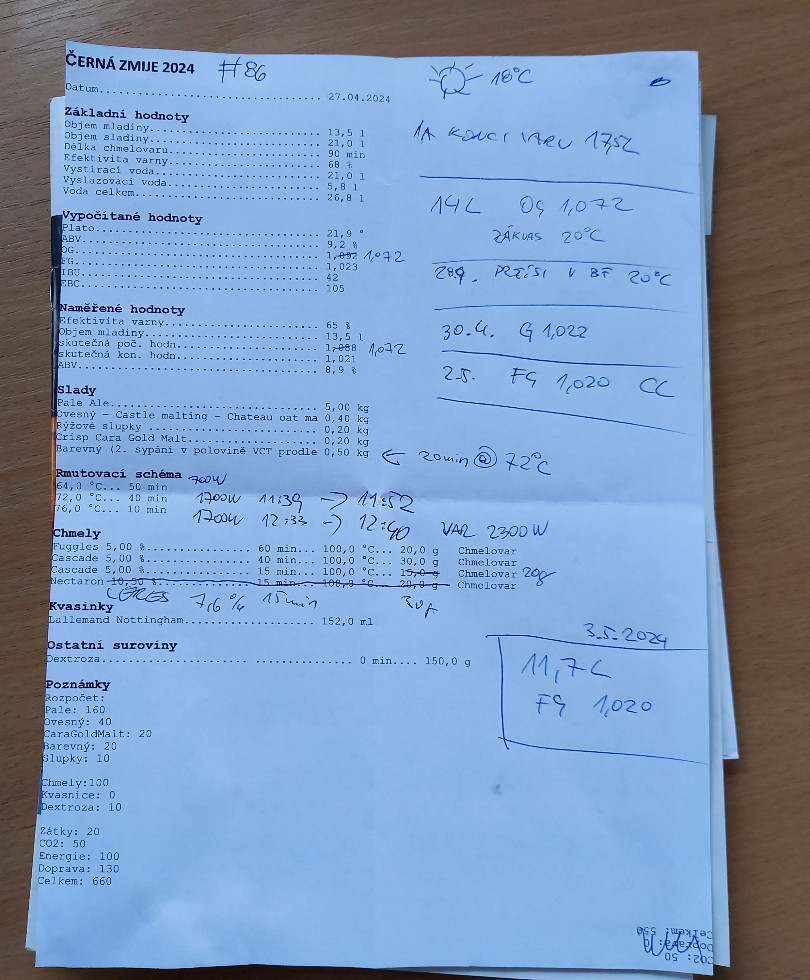 ČERNÁ ZMIJE 2024 #86
18°C
Datum................................ 27.04.2024
Základní hodnoty
Objem mladiny......................... 13,5 l
Objem sladiny......................... 21,0 l
Délka chmelovaru...................... 90 min
Efektivita varny...................... 68 %
Vystírací voda........................ 21,0 l
Vyslazovací voda...................... 5,8 l
Voda celkem........................... 26,8 l
KONCI VARU 17,5L
14L OG 1,072
ZÁKVAS 20°C
Vypočítané hodnoty
Plato................................. 21,9 °
ABV................................... 9,2 %
OG.................................... 1,092 1,072
FG.................................... 1,023
IBU................................... 42
EBC................................... 105
V BF 20°C
Naměřené hodnoty
Efektivita varny...................... 65 %
Objem mladiny......................... 13,5 l
skutečná poč. hodn.................... 1,088 1,072
skutečná kon. hodn.................... 1,021
ABV................................... 8,9 %
30.4. G 1,022
2.5. FG 1,020 CC
Slady
Pale Ale.............................. 5,00 kg
Ovesný - Castle malting - Chateau oat ma 0,40 kg
Rýžové slupky ........................ 0,20 kg
Crisp Cara Gold Malt.................. 0,20 kg
Barevný (2. sypání v polovině VCT prodle 0,50 kg ← 20min @ 72°C
Rmutovací schéma 700W
64,0 °C... 50 min
72,0 °C... 40 min 1700W 11:39 → 11:52
76,0 °C... 10 min 1700W 12:33 → 12:40 VAR 2300W
Chmely
Fuggles 5,00 %................ 60 min... 100,0 °C... 20,0 g Chmelovar
Cascade 5,00 %................ 40 min... 100,0 °C... 30,0 g Chmelovar
Cascade 5,00 %................ 15 min... 100,0 °C... 15,0 g Chmelovar 20g
Nectaron 10,50 %.............. 15 min... 100,0 °C... 20,0 g Chmelovar
CERES 7,6 % 15min 30g
Kvasinky
Lallemand Nottingham.................. 152,0 ml
Ostatní suroviny
Dextroza.................... .............. 0 min.... 150,0 g
3.5.2024
11,7L
FG 1,020
Poznámky
Rozpočet:
Pale: 160
Ovesný: 40
CaraGoldMalt: 20
Barevný: 20
Slupky: 10
Chmely:100
Kvasnice: 0
Dextroza: 10
Zátky: 20
CO2: 50
Energie: 100
Doprava: 130
Celkem: 660
CO2: 50
Doprava: 0
Celkem: 550